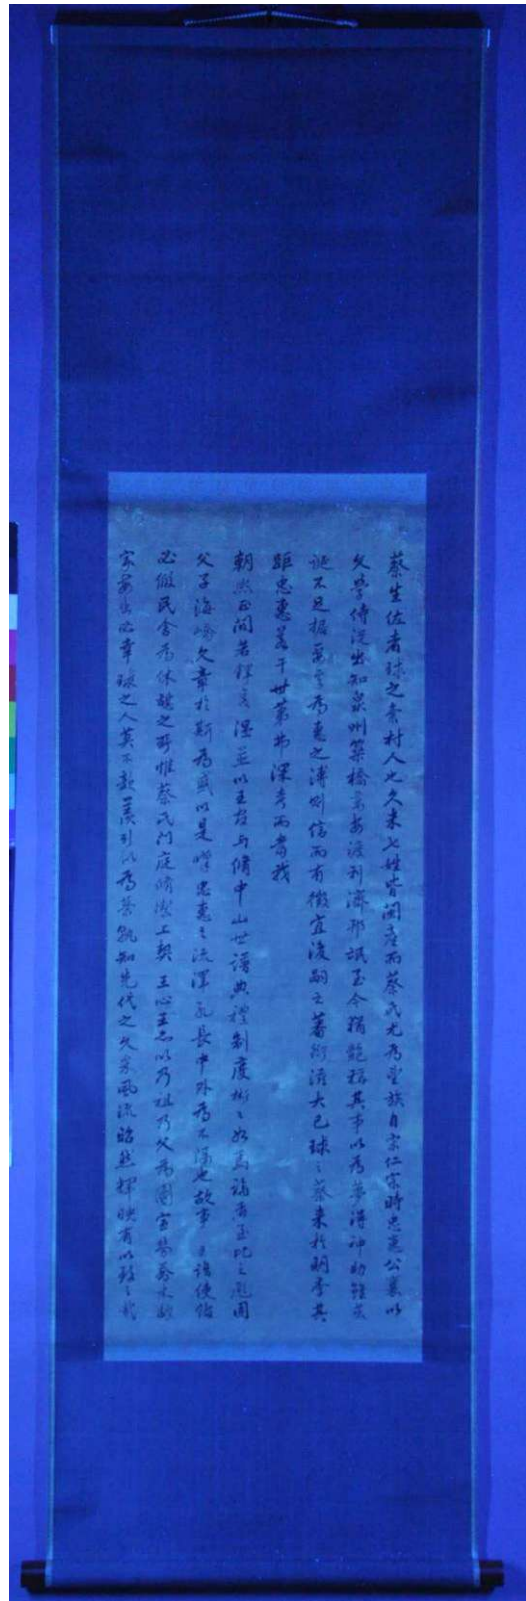 蔡生佐者球之村人也久米七姓皆閩產而蔡氏尤為望族自宋仁宗時忠惠公襄以
文學侍從出知泉州築橋萬安渡利濟邦氓至今猶艷稱其事以為夢得神助雖荒
誕不足據要之為惠之溥則信而有徵宜後嗣之蕃衍滋大已球之蔡来於明季其
距忠惠若干世第弗深考而
朝間若鐸若溫並以王与脩中山世譜典禮制度彬彬
父子海嶠文章於斯為盛以是嘆忠惠之流澤孔長中外為不隔也故事 王請使
必假民舍為休憩之所惟蔡氏門庭脩潔上契 王心王亦以乃祖乃父為國宣勞
家必幸球之人莫不歆羨引以為榮孰知先代之文采風流昭然輝映有以致之哉